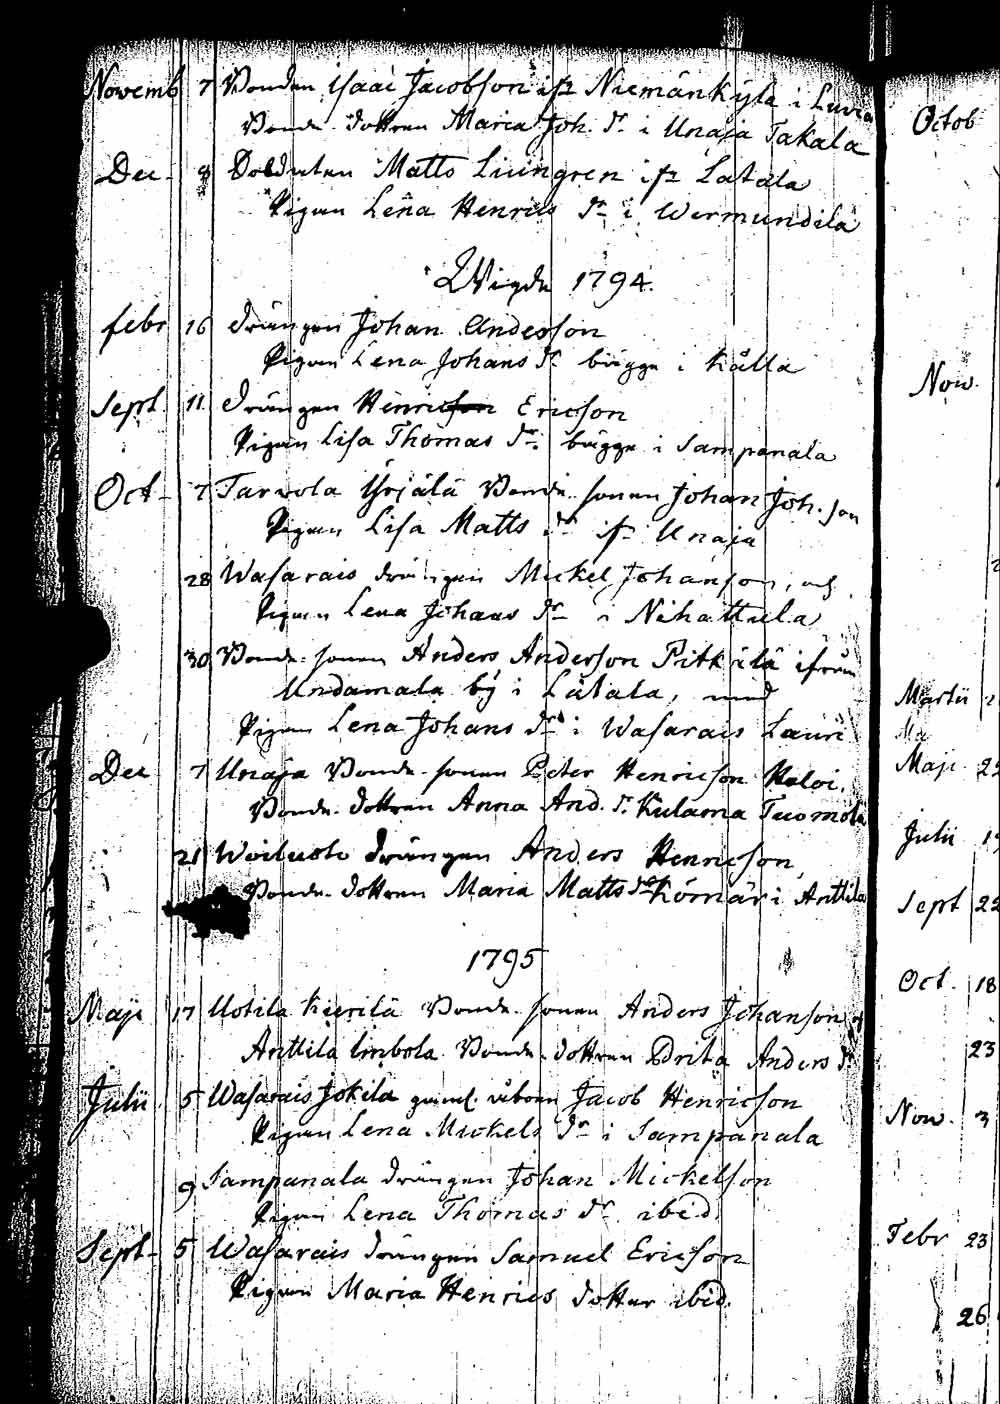 Novemb 7 Bonden Isaac Jacobson ifr Niemänkylä i Luvia
Bonde dottren Maria Joh. dr i Unaja Takala
Dec. 8 Soldaten Matts Liungren ifr Latala
Pigan Lena Henrics dr i Wermundila
Wigde 1794.
febr 16 drängen Johan Andersson
Pigan Lena Johans dr bägge i Kålla
Sept. 11 drängen Henricson Ericson
Pigan Lisa Thomas dr. bägge i Sampanala
Oct. 7 Tarvola Yrjälä Bonde sonen Johan Joh. son
Pigan Lisa Matts dr ifr Unaja
28 Wasarais drängen Mickel Johanson, och
Pigan Lena Johans dr i Nihattula
30 Bonde sonen Anders Anderson Pitkälä ifrån
Undamala bÿ i Lätala, med
Pigan Lena Johans dr i Wasarais Lauri
Dec 7 Unaja Bonde sonen Peter Henricson Heloi.
Bonde dottren Anna And. dr. Kulama Tuomola
21 Woiluoto drängen Anders Henricson,
Bonde dottren Maria Matts dr Kömäri Anttila
1795
Maji 17 Uotila Kierilä Bonde sonen Anders Johanson
Anttila Bonde dottren Brita Anders dr
Julii 5 Wasarais Jokela Jacob Henricson
Pigan Lena Mickels dr i Sampanala
9 Sampanala drängen Johan Mickelson
Pigan Lena Thomas dr ibid.
Sept. 5 Wasarais drängen Samuel Ericson
Pigan Maria Henrics dotter ibid.
Octob
Nov.
Martii
Ma
Maji 22
Julii
Sept 22
Oct. 18
23
Nov. 3
Febr 23
26